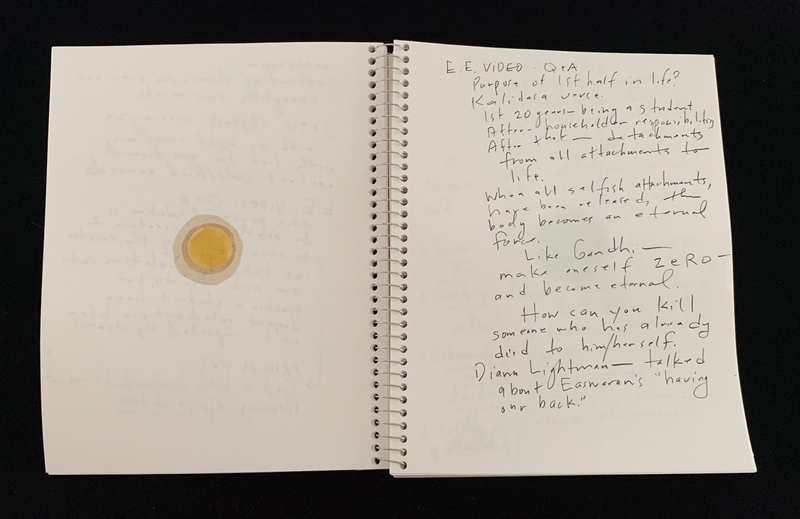 E. E. ViDEO - Q+A
Purpose of 1st half in life?
Kalidasa verse.
1st 20 years - being a student
After - householder responsibilities
After that — detachments
from all attachments to
life.
When all selfish attachments,
have been released, the
body becomes an eternal
force.
Like Gandhi —
make oneself ZeRO —
and become eternal.
How can you kill
someone who has already
died to him/herself.
Diana Lightman — talked
about Easwaran's "having
our back."